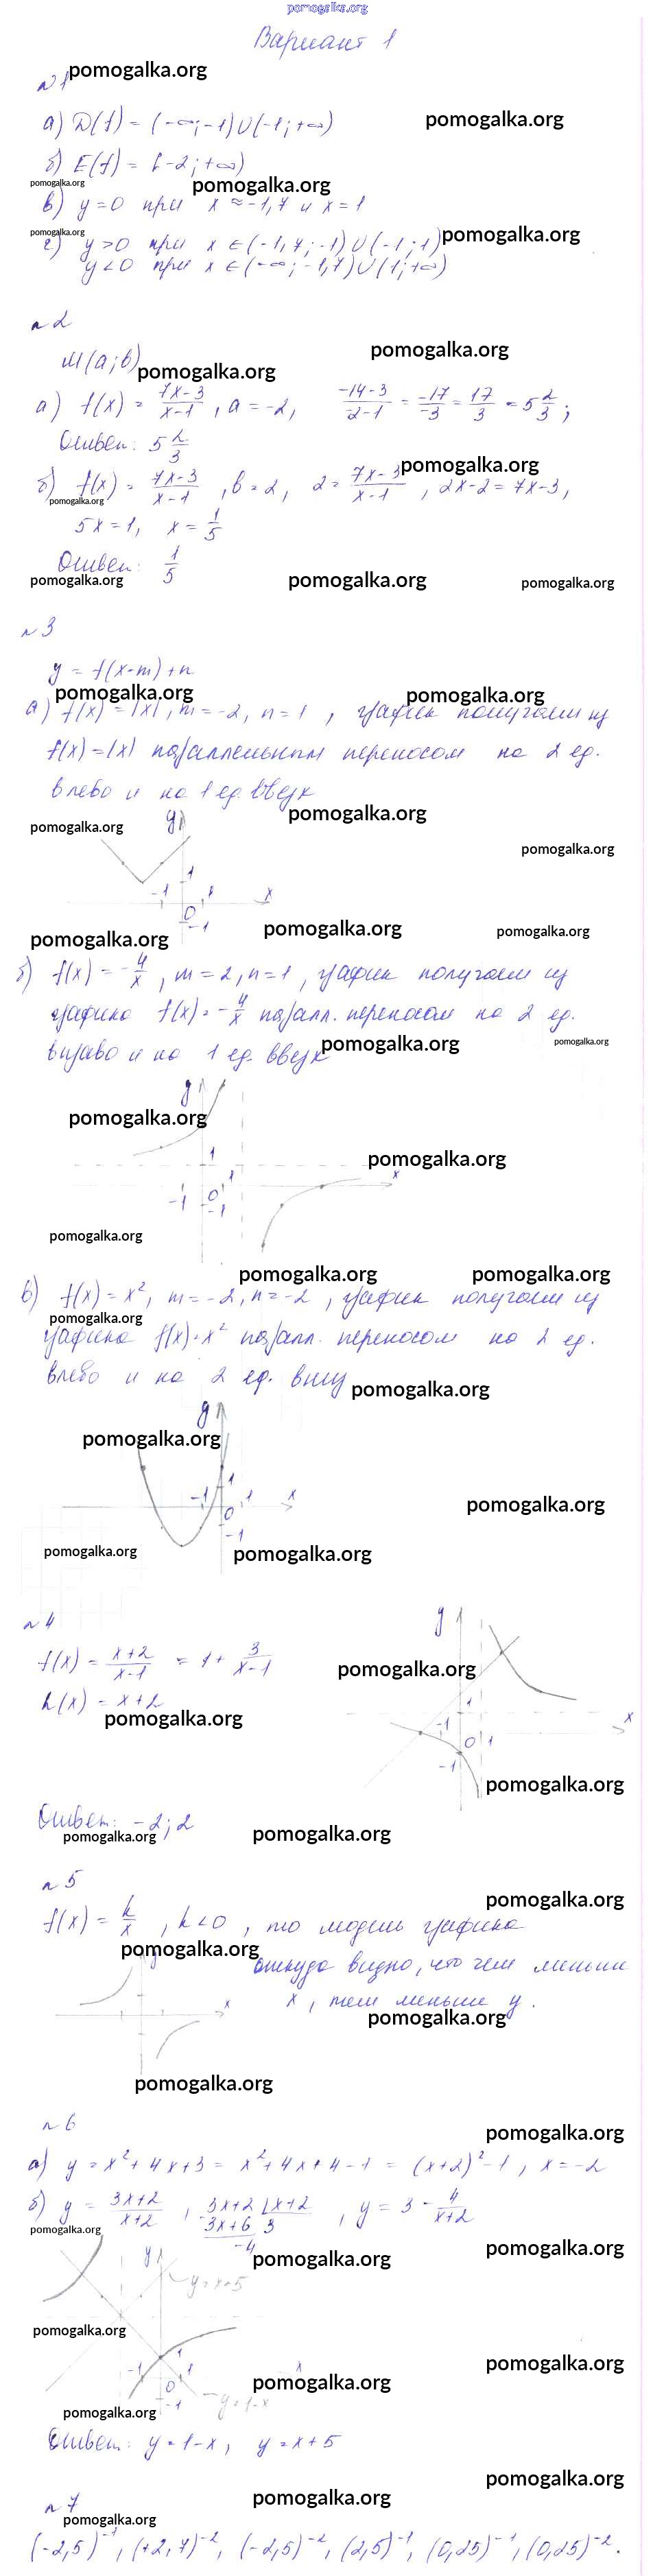 pomogalka.org
Вариант 1
№1 pomogalka.org
а) D(f) = (-∞; -1) ∪ (-1; +∞) pomogalka.org
б) E(f) = [-2; +∞)
pomogalka.org pomogalka.org
в) y = 0 при x ≈ -1,7 и x = 1
pomogalka.org
г) y > 0 при x ∈ (-1,7; -1) ∪ (-1; 1) pomogalka.org
y < 0 при x ∈ (-∞; -1,7) ∪ (1; +∞)
№2
pomogalka.org
M(a; b) pomogalka.org
а) f(x) = (7x-3)/(x-1), a = -2, (-14-3)/(-2-1) = -17/-3 = 17/3 = 5 2/3;
Ответ: 5 2/3
pomogalka.org
б) f(x) = (7x-3)/(x-1), b = 2, 2 = (7x-3)/(x-1), 2x-2 = 7x-3,
pomogalka.org
5x = 1, x = 1/5
Ответ: 1/5
pomogalka.org pomogalka.org pomogalka.org
№3
y = f(x-m)+n
pomogalka.org pomogalka.org
а) f(x) = |x|, m = -2, n = 1, график получаем из
f(x) = |x| параллельным переносом на 2 ед.
влево и на 1 ед. вверх
pomogalka.org pomogalka.org
y
pomogalka.org
1
-1 1 x
0
-1
pomogalka.org pomogalka.org pomogalka.org
б) f(x) = -4/x, m = 2, n = 1, график получаем из
графика f(x) = -4/x паралл. переносом на 2 ед.
вправо и на 1 ед. вверх pomogalka.org pomogalka.org
y
pomogalka.org
1
pomogalka.org
1 x
-1 0
-1
pomogalka.org
pomogalka.org pomogalka.org
в) f(x) = x², m = -2, n = -2, график получаем из
pomogalka.org
графика f(x) = x² паралл. переносом на 2 ед.
влево и на 2 ед. вниз pomogalka.org
y
pomogalka.org
1
-1 1 x
0
-1
pomogalka.org
pomogalka.org pomogalka.org
№4
y
f(x) = (x+2)/(x-1) = 1 + 3/(x-1)
pomogalka.org
h(x) = x+2
pomogalka.org
1
x
-1 0 1
-1
pomogalka.org
Ответ: -2; 2
pomogalka.org pomogalka.org
№5
pomogalka.org
f(x) = k/x, k < 0, то модель графика
pomogalka.org
откуда видно, что чем меньше
x, тем меньше y.
x
pomogalka.org
pomogalka.org
№6
pomogalka.org
а) y = x² + 4x + 3 = x² + 4x + 4 - 1 = (x+2)² - 1, x = -2
б) y = (3x+2)/(x+2), 3x+2 | x+2
3x+6 3
-4
, y = 3 - 4/(x+2)
pomogalka.org pomogalka.org
y
pomogalka.org
y = x+5
pomogalka.org
1
-1 0 1 x
-1
pomogalka.org
pomogalka.org
y = 1-x
pomogalka.org
Ответ: y = 1-x, y = x+5
pomogalka.org
№7
pomogalka.org
pomogalka.org
(-2,5)⁻¹, (+2,7)⁻², (-2,5)⁻², (2,5)⁻¹, (0,25)⁻¹, (0,25)⁻².